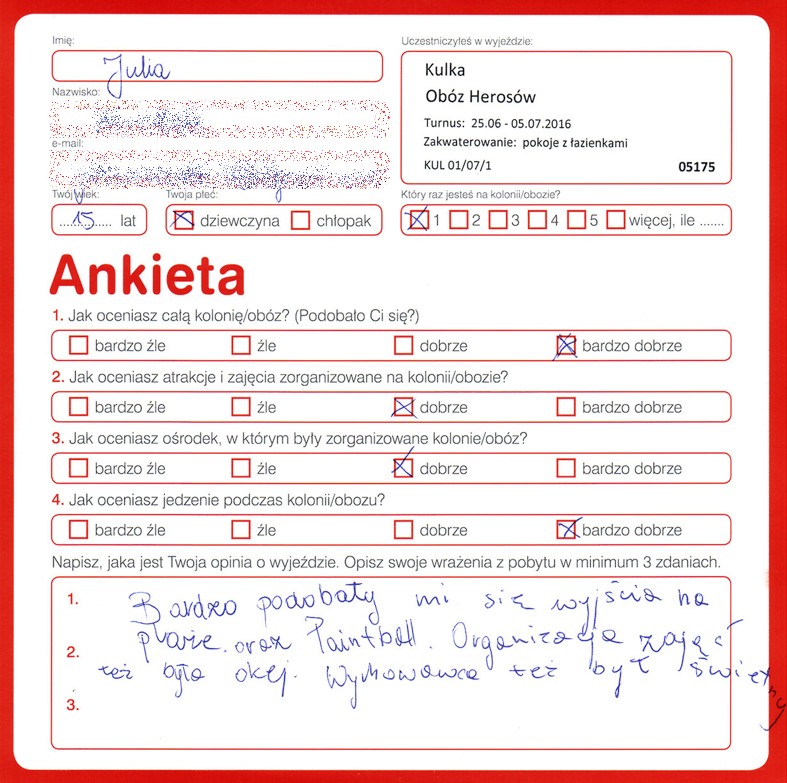 Imię:
Julia
Nazwisko:
e-mail:
Twój wiek:
15 lat
Twoja płeć:
dziewczyna chłopak
Uczestniczyłeś w wyjeździe:
Kulka
Obóz Herosów
Turnus: 25.06 - 05.07.2016
Zakwaterowanie: pokoje z łazienkami
KUL 01/07/1 05175
Który raz jesteś na kolonii/obozie?
1 2 3 4 5 więcej, ile .......
Ankieta
1. Jak oceniasz całą kolonię/obóz? (Podobało Ci się?)
bardzo źle źle dobrze bardzo dobrze
2. Jak oceniasz atrakcje i zajęcia zorganizowane na kolonii/obozie?
bardzo źle źle dobrze bardzo dobrze
3. Jak oceniasz ośrodek, w którym były zorganizowane kolonie/obóz?
bardzo źle źle dobrze bardzo dobrze
4. Jak oceniasz jedzenie podczas kolonii/obozu?
bardzo źle źle dobrze bardzo dobrze
Napisz, jaka jest Twoja opinia o wyjeździe. Opisz swoje wrażenia z pobytu w minimum 3 zdaniach.
1. Bardzo podobały mi się wyjścia na
plaże oraz Paintball. Organizacja zajęć
2.
też była okej. Wychowawca też był świetny
3.